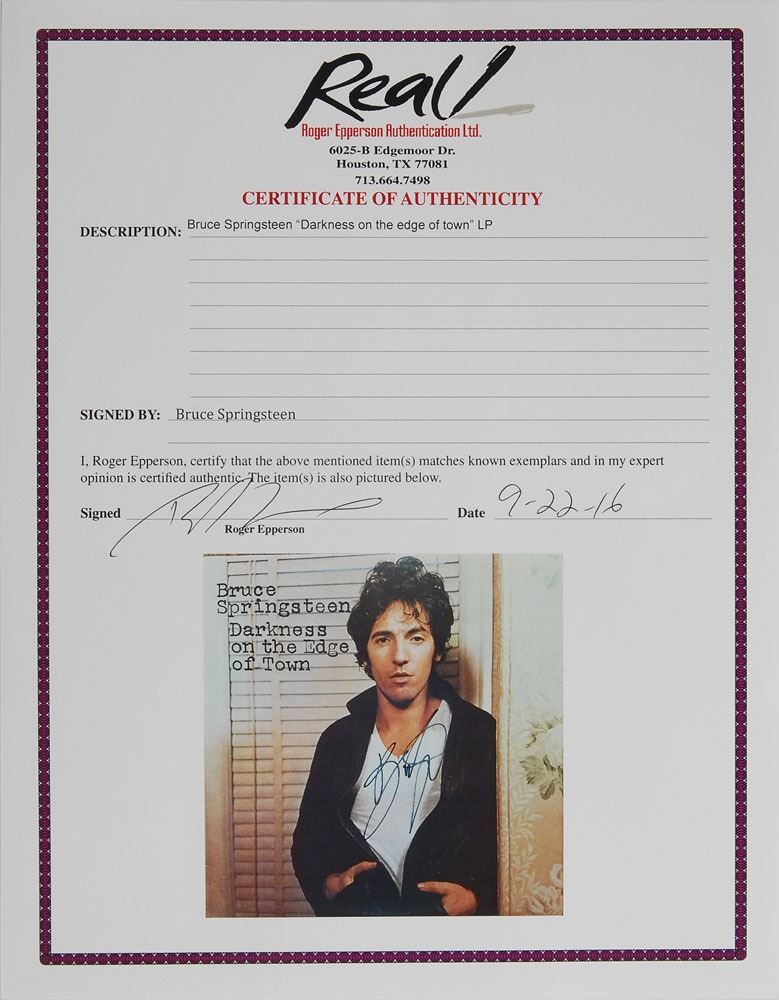 Real!
Roger Epperson Authentication Ltd.
6025-B Edgemoor Dr.
Houston, TX 77081
713.664.7498
CERTIFICATE OF AUTHENTICITY
DESCRIPTION: Bruce Springsteen "Darkness on the edge of town" LP
SIGNED BY: Bruce Springsteen
I, Roger Epperson, certify that the above mentioned item(s) matches known exemplars and in my expert
opinion is certified authentic. The item(s) is also pictured below.
Signed
Date 9-22-16
Roger Epperson
Bruce
Springsteen
Darkness
on the Edge
of Town